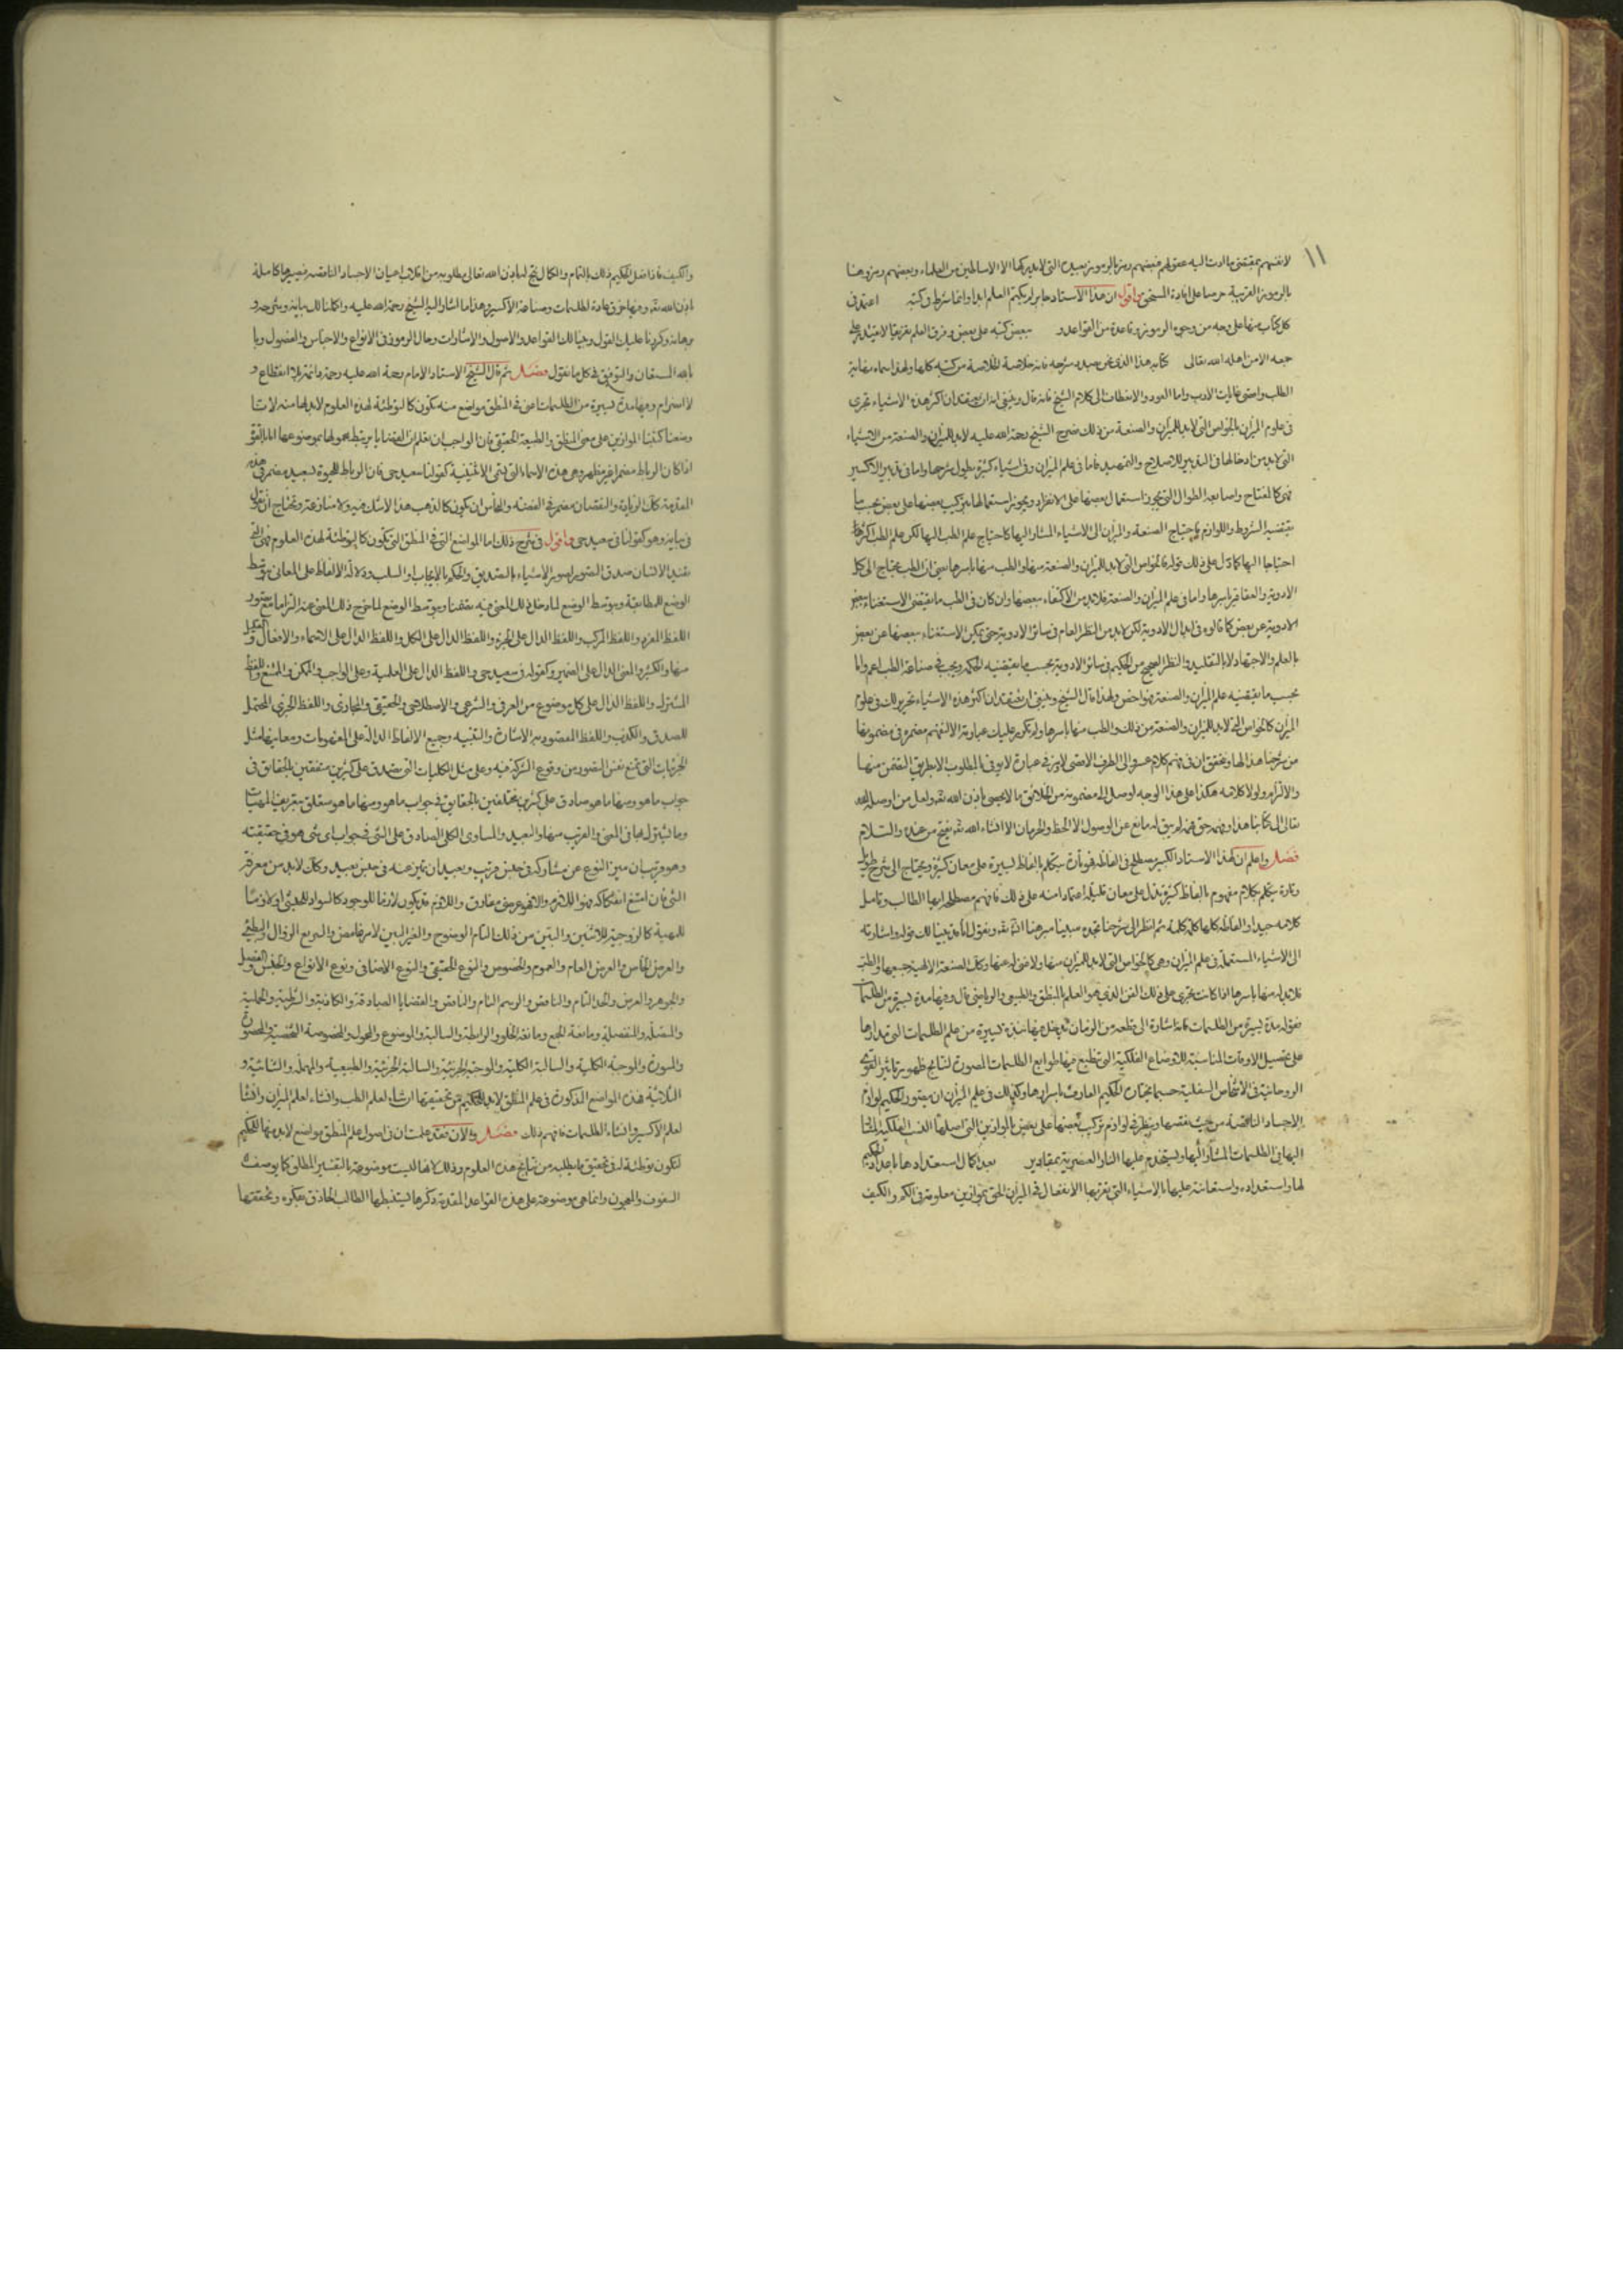 ١١
لانفسهم بمقتضى ما ادت اليه عقولهم فبعضهم رمز بالرموز البعيدة التى لا يدركها الا الاساطين من العلماء وبعضهم رمزوها
بالرموز القريبة حرصا على افادة المستحق واقول ان هذا الاستاد جابر لم يكتم العلم ابدا وانما شرط فى كتبه اعتمد فى
كل كتاب منها على وجه من وجوه الرموز وقاعدة من القواعد و بعض كتبه على بعض وفرق العلم تفريقا لا يقدر على
جمعه الا من اهله الله تعالى كتابه هذا الذى نحن بصدد شرحه فانه خلاصة الخلاصة من كتبه كلها ولهذا سماه نهاية
الطلب واقصى غايات الادب واما العود والانعطاف الى كلام الشيخ فانه قال وينبغى لنا ان نعتقد ان اكثر هذه الاشياء تجرى
فى علوم الميزان كالخواص التى لا بد للميزان والصنعة من ذلك صرح الشيخ رحمة الله عليه لا بد للميزان والصنعة من الاشياء
التى لا بد من ادخالها فى التدبير للاصلاح والتمهيد فاما فى علم الميزان وفى اشياء كثيرة يطول شرحها واما فى تدبير الاكسير
فهى كالمفتاح واصابعه الطوال التى يجوز استعمال بعضها على الانفراد ويجوز استعمالها بتركيب بعضها على بعض بحسب ما
يقتضيه الشروط واللوازم احتياج الصنعة والميزان الى الاشياء المشار اليها كاحتياج علم الطب اليها لكن علم الطب اكثرها
احتياجا اليها كما دل على ذلك قوله كالخواص التى لا بد للميزان والصنعة منها والطب منها باسرها يعنى ان الطب يحتاج الى كل
الادوية والعقاقير باسرها واما فى علم الميزان والصنعة فلا بد من الاكتفاء ببعضها وان كان فى الطب ما يقتضى الاستغناء ببعض
الادوية عن بعض كما قالوه فى ابدال الادوية لكن لا بد من النظر العام فى سائر الادوية حتى يمكن الاستغناء ببعضها عن بعض
بالعلم والاجتهاد لا بالتقليد والنظر الصحيح من الحكيم فى سائر الادوية بحسب ما يقتضيه الحكيم ويجب فى صناعة الطب اعم واما
بحسب ما يقتضيه علم الميزان والصنعة فهو اخص ولهذا قال الشيخ وينبغى ان يعتقد ان اكثر هذه الاشياء تجرى لك فى علوم
الميزان كالخواص التى لا بد للميزان والصنعة من ذلك والطب منها باسرها ولم يكرر عليك عبارته الا لتفهم مضمره فى مضمونها
من شرحنا هذا لها وتحقق ان فى فهم كلامه الى الطرف الاقصى لا يبرز فى عبارة لا يوفى بالمطلوب الا بطريق التضمن منها
والالتزام ولولا كلامه هكذا على هذا الوجه لوصل الى مضمونه من الخلائق ما لا يحصى باذن الله تعالى ولعل من اوصله الله
تعالى الى كتابنا هذا وفهمه حق فهمه لم يبق له مانع عن الوصول الا الحظ والحرمان الا ان شاء الله يفتح من عنده والسلام
فصل واعلم ان لهذا الاستاد الكبير مصطلح فى الفاظه فهو تارة يتكلم بالفاظ يسيرة على معان كثيرة ويحتاج الى شرح طويل
وتارة يتكلم بكلام مفهوم بالفاظ كثيرة تدل على معان قليلة اعتمادا منه على ذلك فافهم مصطلحه ايها الطالب وتامل
كلامه جيدا والفاظه كلها كلمة كلمة ثم انظر الى شرحنا تجده مبينا مبرهنا ان شاء الله ونقول اما بعد فبينا لك قوله واشارته
الى الاشياء المستعملة فى علم الميزان وهى كالخواص التى لا بد للميزان منها ولا غنى له عنها وكذلك الصنعة الالهية جميعها والطب
فلا بد له منها باسرها اذا كانت تجرى على ذلك الفن الذى هو العلم المنطقى والطبيعى والرياضى قال وفيها مدة يسيرة من الطلسمات
فقوله مدة يسيرة من الطلسمات فانه اشارة الى قطعة من الزمان يدخل فيها نبذة يسيرة من علم الطلسمات التى مدارها
على تحصيل الاوقات المناسبة للاوضاع الفلكية التى تنطبع فيها طوابع الطلسمات المصورة لنتائج ظهور تاثير القوى
الروحانية فى الاشخاص السفلية حسبما يختاره الحكيم العارف باسرارها وكذلك فى علم الميزان ان يتصور الحكيم لوازم
الاجساد الناقصة من حيث نقصها وينظر فى لوازم تركيب بعضها على بعض بالموازين التى اصلها النسب الفلكية المشار
اليها فى الطلسمات المشار اليها ويستخدم عليها النار العنصرية بمقادير بعد اكمال استعدادها باعداد الحكيم
لها واستعداده واستعانته عليها بالاشياء التى يقربها الانفعال فى الميزان الحق بموازين معلومة فى الكم والكيف
والكيف فاذا فعل الحكيم ذلك بالتمام والكمال نتج له باذن الله تعالى مطلوبه من انقلاب اعيان الاجساد الناقصة فيصيرها كاملة
باذن الله تعالى وفيها خرق عادة الطلسمات وصناعة الاكسير وهذا ما اشار اليه الشيخ رحمة الله عليه واكملنا لك بيانه وشرحه و
برهانه وكررنا عليك القول وبينا لك القواعد والاصول والاشارات وحال الرموز فى الانواع والاجناس والفصول وبا
بالله المستعان والتوفيق فى كل ما نقول فصل ثم قال الشيخ الاستاد الامام رحمة الله عليه رحمة دائمة بلا انقطاع و
لا انصرام وفيها مدة يسيرة من الطلسمات اعنى فى المنطق مواضع منه تكون كالتوطئة لهذه العلوم لا بد لها منه لاننا
وضعنا كتبنا الموازين على معنى المنطق والطبيعة الحقيقى فان الواجب ان نعلم ان القضايا يرتبط محمولها بموضوعها اما بالقوة
اذا كان الرباط مضمرا غير مظهر وهى هذه الاسماء التى الا لحقيقية كقولنا سعيد حى فان الرباط للحيوة لسعيد مضمر فى هذه
المقدمة كذلك الزيادة والنقصان مضمر فى الفضة والنحاس ان يكون كالذهب هذا لا شك فيه ولا منازعة وتحتاج ان نقول
فى بيانه وهو كقولنا فى سعيد حى واقول فى شرح ذلك اما المواضع التى فى المنطق التى تكون كالتوطئة لهذه العلوم فهى التى
تفيد الانسان صدق التصور لصور الاشياء بالتصديق والحكم بالايجاب او السلب ودلالة الالفاظ على المعانى بتوسط
الوضع للمطابقة وبتوسط الوضع لما دخل ذلك المعنى فيه تضمنا وبتوسط الوضع لما خرج ذلك المعنى عنه التزاما مع تصور
اللفظ المفرد واللفظ المركب واللفظ الدال على الجزء واللفظ الدال على الكل واللفظ الدال على الاسماء والافعال
منها والكثير والمعنى الدال على الضمير كقوله فى سعيد حى واللفظ الدال على العلمية وعلى الواجب والممكن والممتنع واللفظ
المشترك واللفظ الدال على كل موضوع من العرفى والشرعى والاصطلاحى والحقيقى والمجازى واللفظ الخبرى المحتمل
للصدق والكذب واللفظ المقصود به الاشارة والتنبيه وجميع الالفاظ الدالة على المفهومات ومعانيها مثل
الجزئيات التى تمنع نفس التصور من وقوع الشركة فيه وعلى مثل الكليات التى تصدق على كثيرين متفقين بالحقائق فى
جواب ما هو ومنها ما هو صادق على كثيرين مختلفين بالحقايق فى جواب ما هو ومنها ما هو متعلق بتعريف المهيات
وما يتنزل لها فى المعنى والقرب منها والبعيد والمساوى الكلى الصادق على الشى فى جواب اى شى هو فى حقيقته
وهو قريب ان ميز النوع عن مشاركه فى جنس قريب وبعيد ان ميز عنه فى جنس بعيد وكذلك لا بد من معرفة
الشى فان امتنع انفكاكه فهو اللازم والا فهو عرض مفارق واللازم قد يكون لازما للوجود كالسواد للحبشى او لازما
للمهية كالزوجية للاثنين والبين من ذلك التام الوضوح والغير البين لامر غامض والسريع الزوال والبطئ
والعرض الخاص والعرض العام والعموم والخصوص والنوع الحقيقى والنوع الاضافى ونوع الانواع والجنس والفصل
والجوهر والعرض والحد التام والناقص والرسم التام والناقص والقضايا الصادقة والكاذبة والشرطية والحملية
والمتصلة والمنفصلة ومانعة الجمع ومانعة الخلو والرابطة والسالبة والموضوع والمحمول والمخصوصة الشخصية والمحصورة
والمسورة والموجبة الكلية والسالبة الكلية والموجبة الجزئية والسالبة الجزئية والطبيعية والمهملة والثنائية و
الثلاثية فهذه المواضع المذكورة فى علم المنطق لا بد للحكيم من تحقيقها ارشادا لعلم الطب وافشاء لعلم الميزان وافشا
لعلم الاكسير وافشاء الطلسمات فافهم ذلك فصل والان فقد علمت ان فى اصول علم المنطق مواضع لا بد منها للحكيم
لتكون توطئة له فى تحقيق ما يطلبه من نتايج هذه العلوم وذلك لانها ليست موضوعة بالتفسير المطلق كما يوصف
السفوف والمعجون وانما هى موضوعة على هذه القواعد المقدمة ذكرها يستنبطها الطالب الحاذق بفكره وتحققها